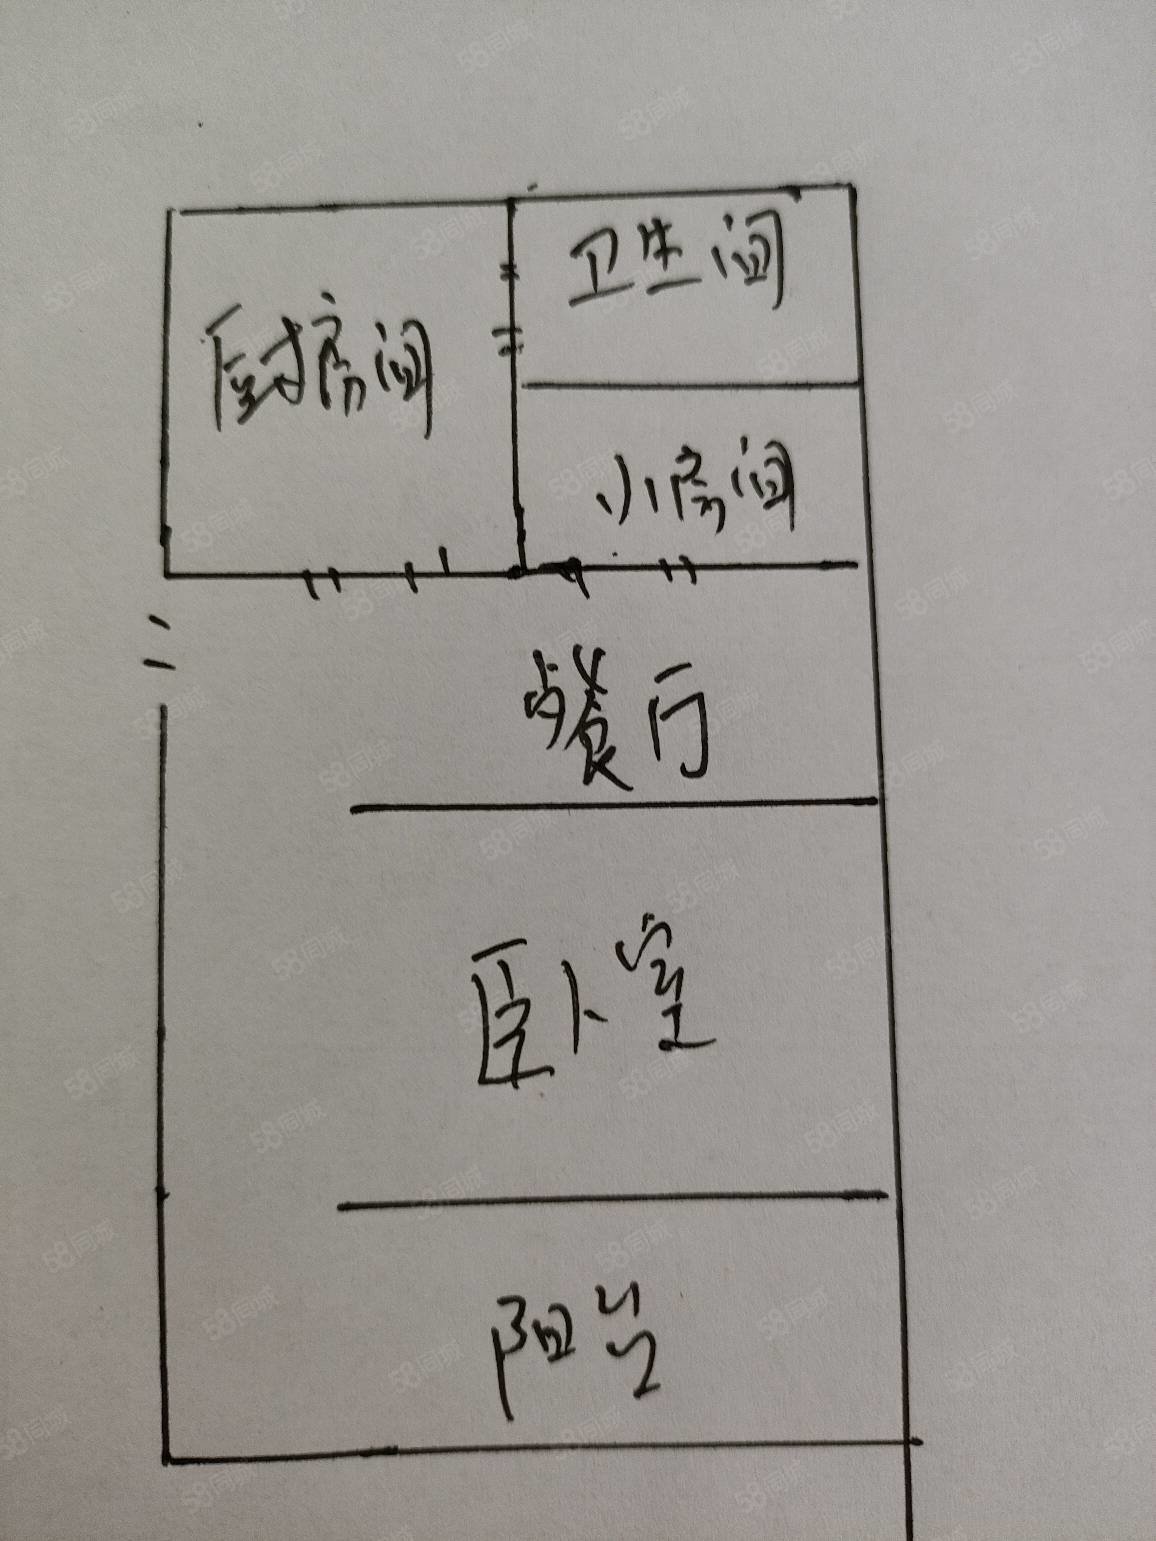 卫生间
厨房间
小房间
餐厅
卧室
阳台
58同城